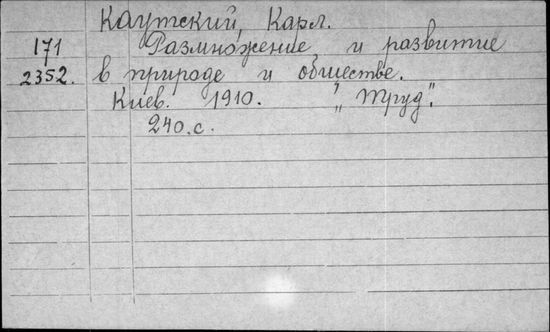 Каутский, Карл.
171 Размножение и развитие
2352. в природе и обществе.
Киев. 1910. „Труд".
240.с.